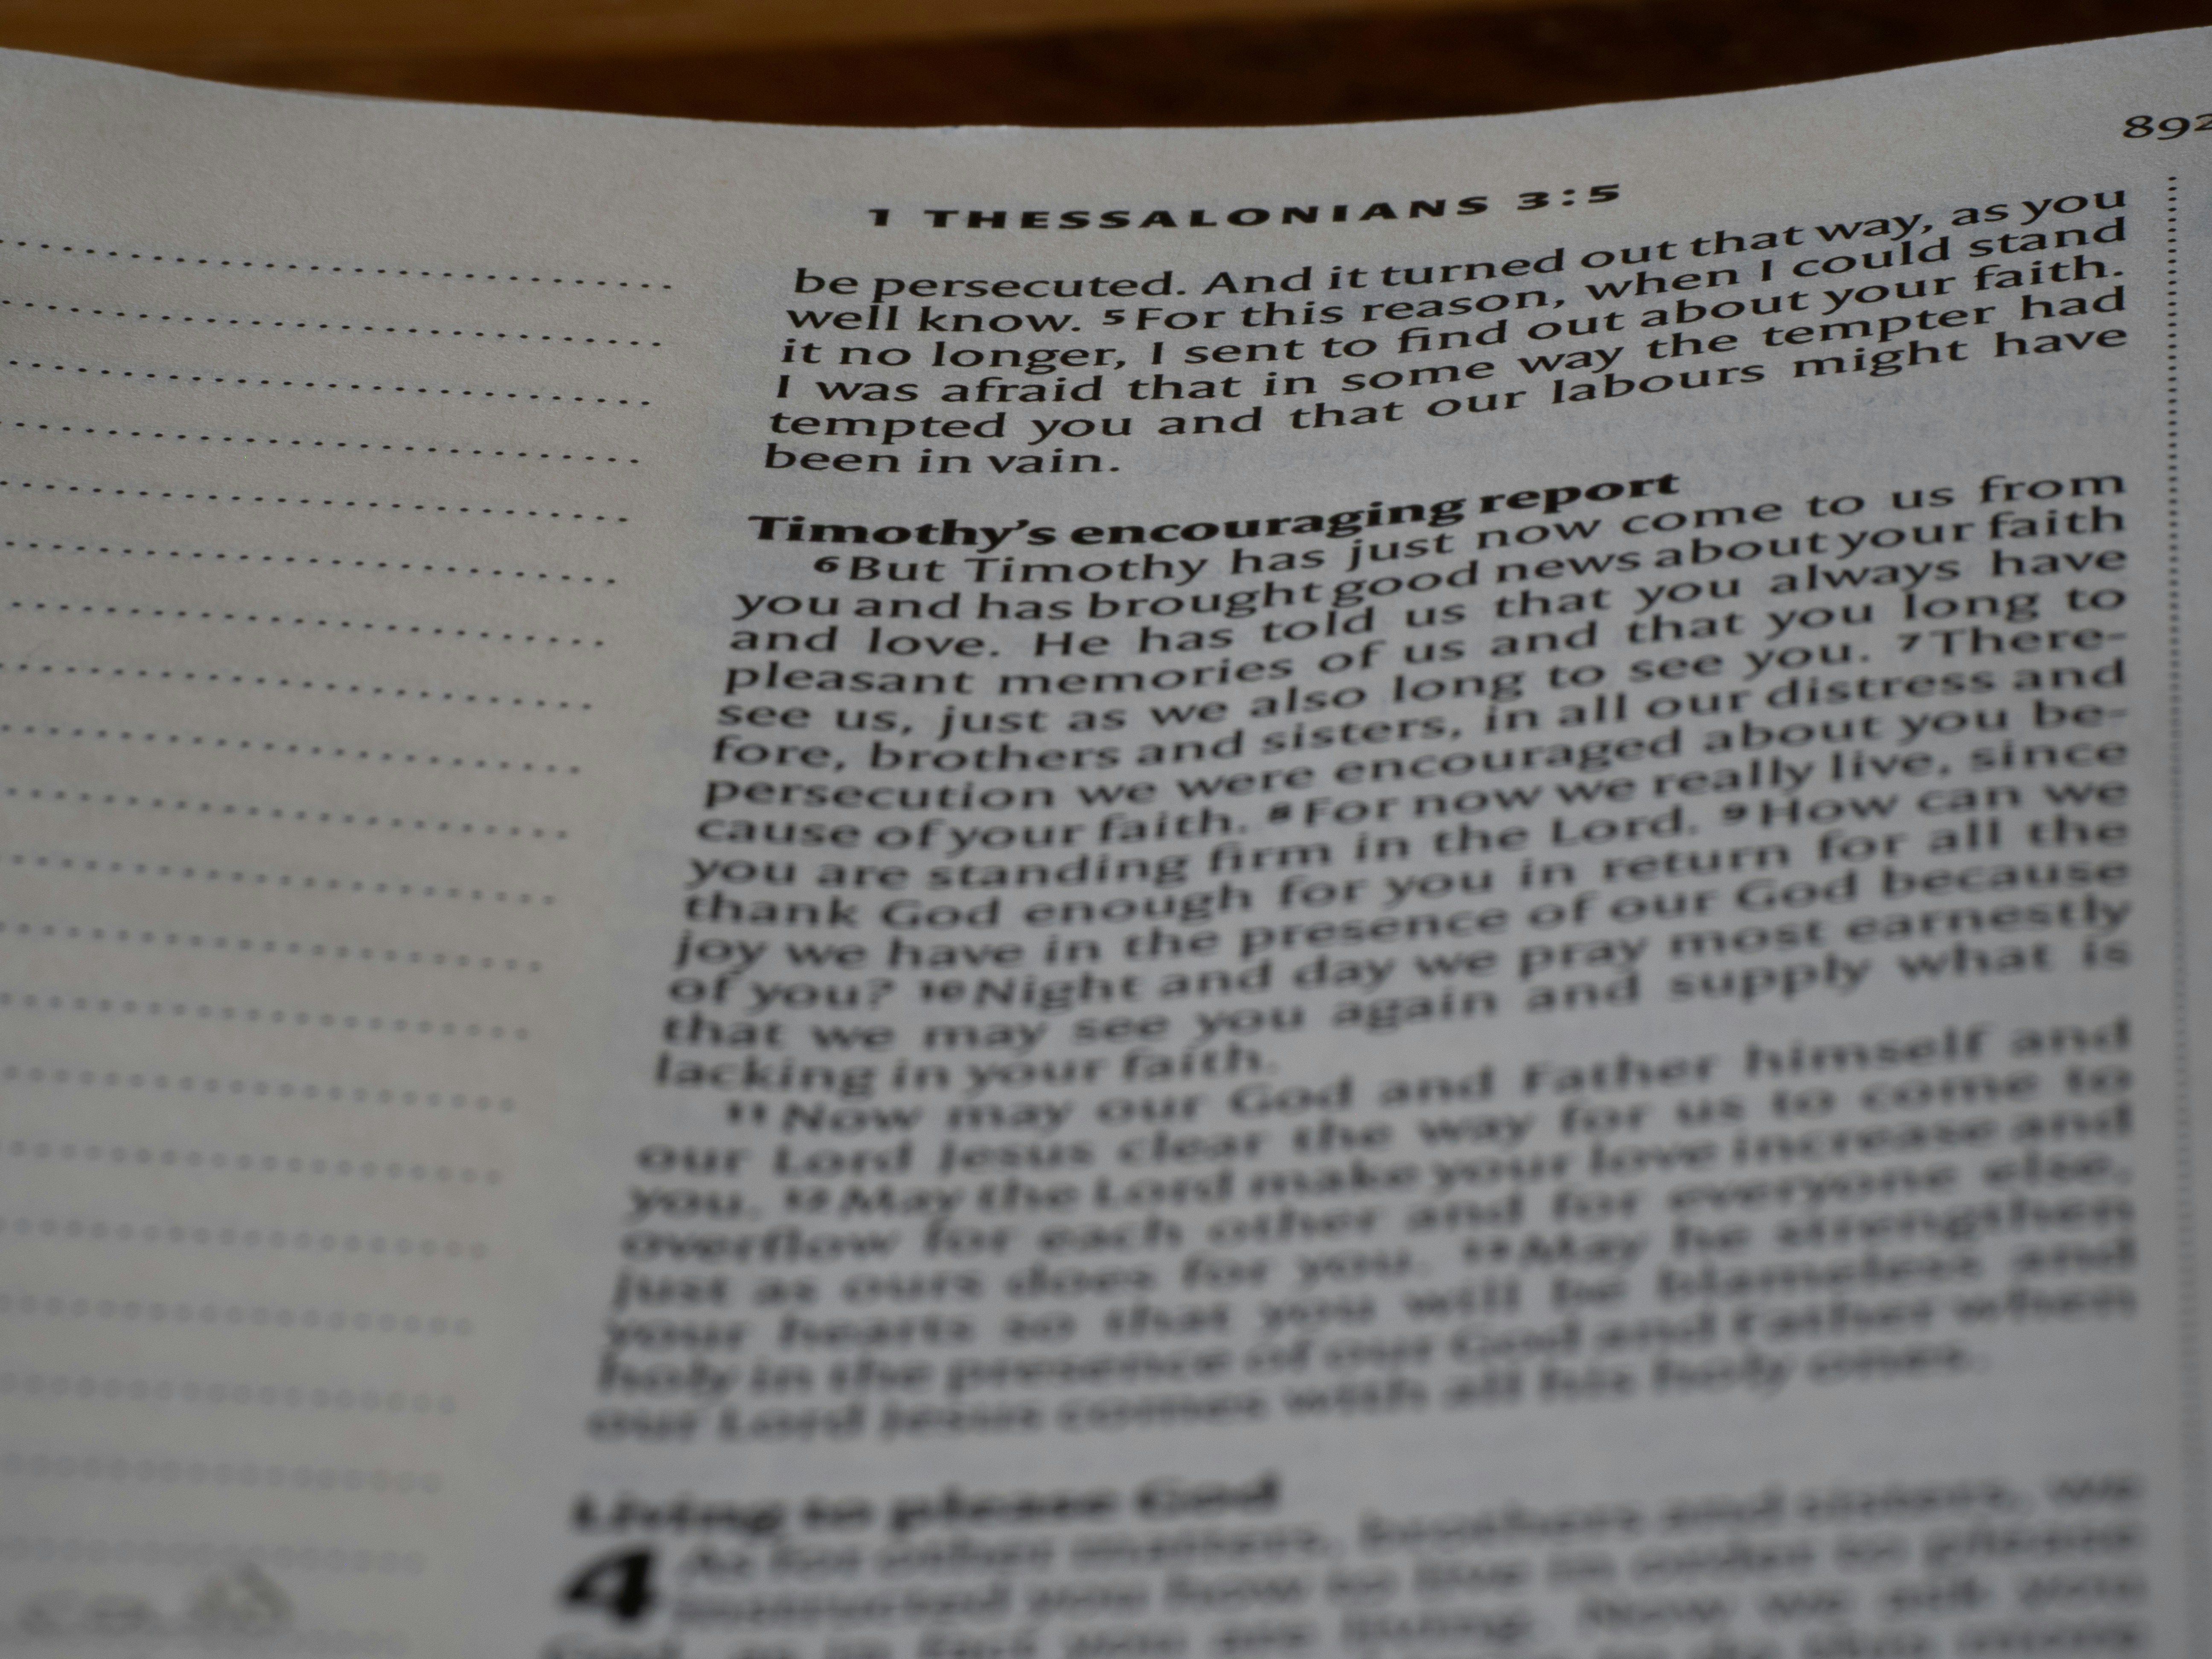 892
1 THESSALONIANS 3:5
be persecuted. And it turned out that way, as you
well know. 5 For this reason, when I could stand
it no longer, I sent to find out about your faith.
I was afraid that in some way the tempter had
tempted you and that our labours might have
been in vain.
Timothy's encouraging report
6 But Timothy has just now come to us from
you and has brought good news about your faith
and love. He has told us that you always have
pleasant memories of us and that you long to
see us, just as we also long to see you. 7 There-
fore, brothers and sisters, in all our distress and
persecution we were encouraged about you be-
cause of your faith. 8 For now we really live, since
you are standing firm in the Lord. 9 How can we
thank God enough for you in return for all the
joy we have in the presence of our God because
of you? 10 Night and day we pray most earnestly
that we may see you again and supply what is
lacking in your faith.
11 Now may our God and Father himself and
our Lord Jesus clear the way for us to come to
you. 12 May the Lord make your love increase and
overflow for each other and for everyone else,
just as ours does for you. 13 May he strengthen
your hearts so that you will be blameless and
holy in the presence of our God and Father when
our Lord Jesus comes with all his holy ones.
Living to please God
4 As for other matters, brothers and sisters, we
instructed you how to live in order to please